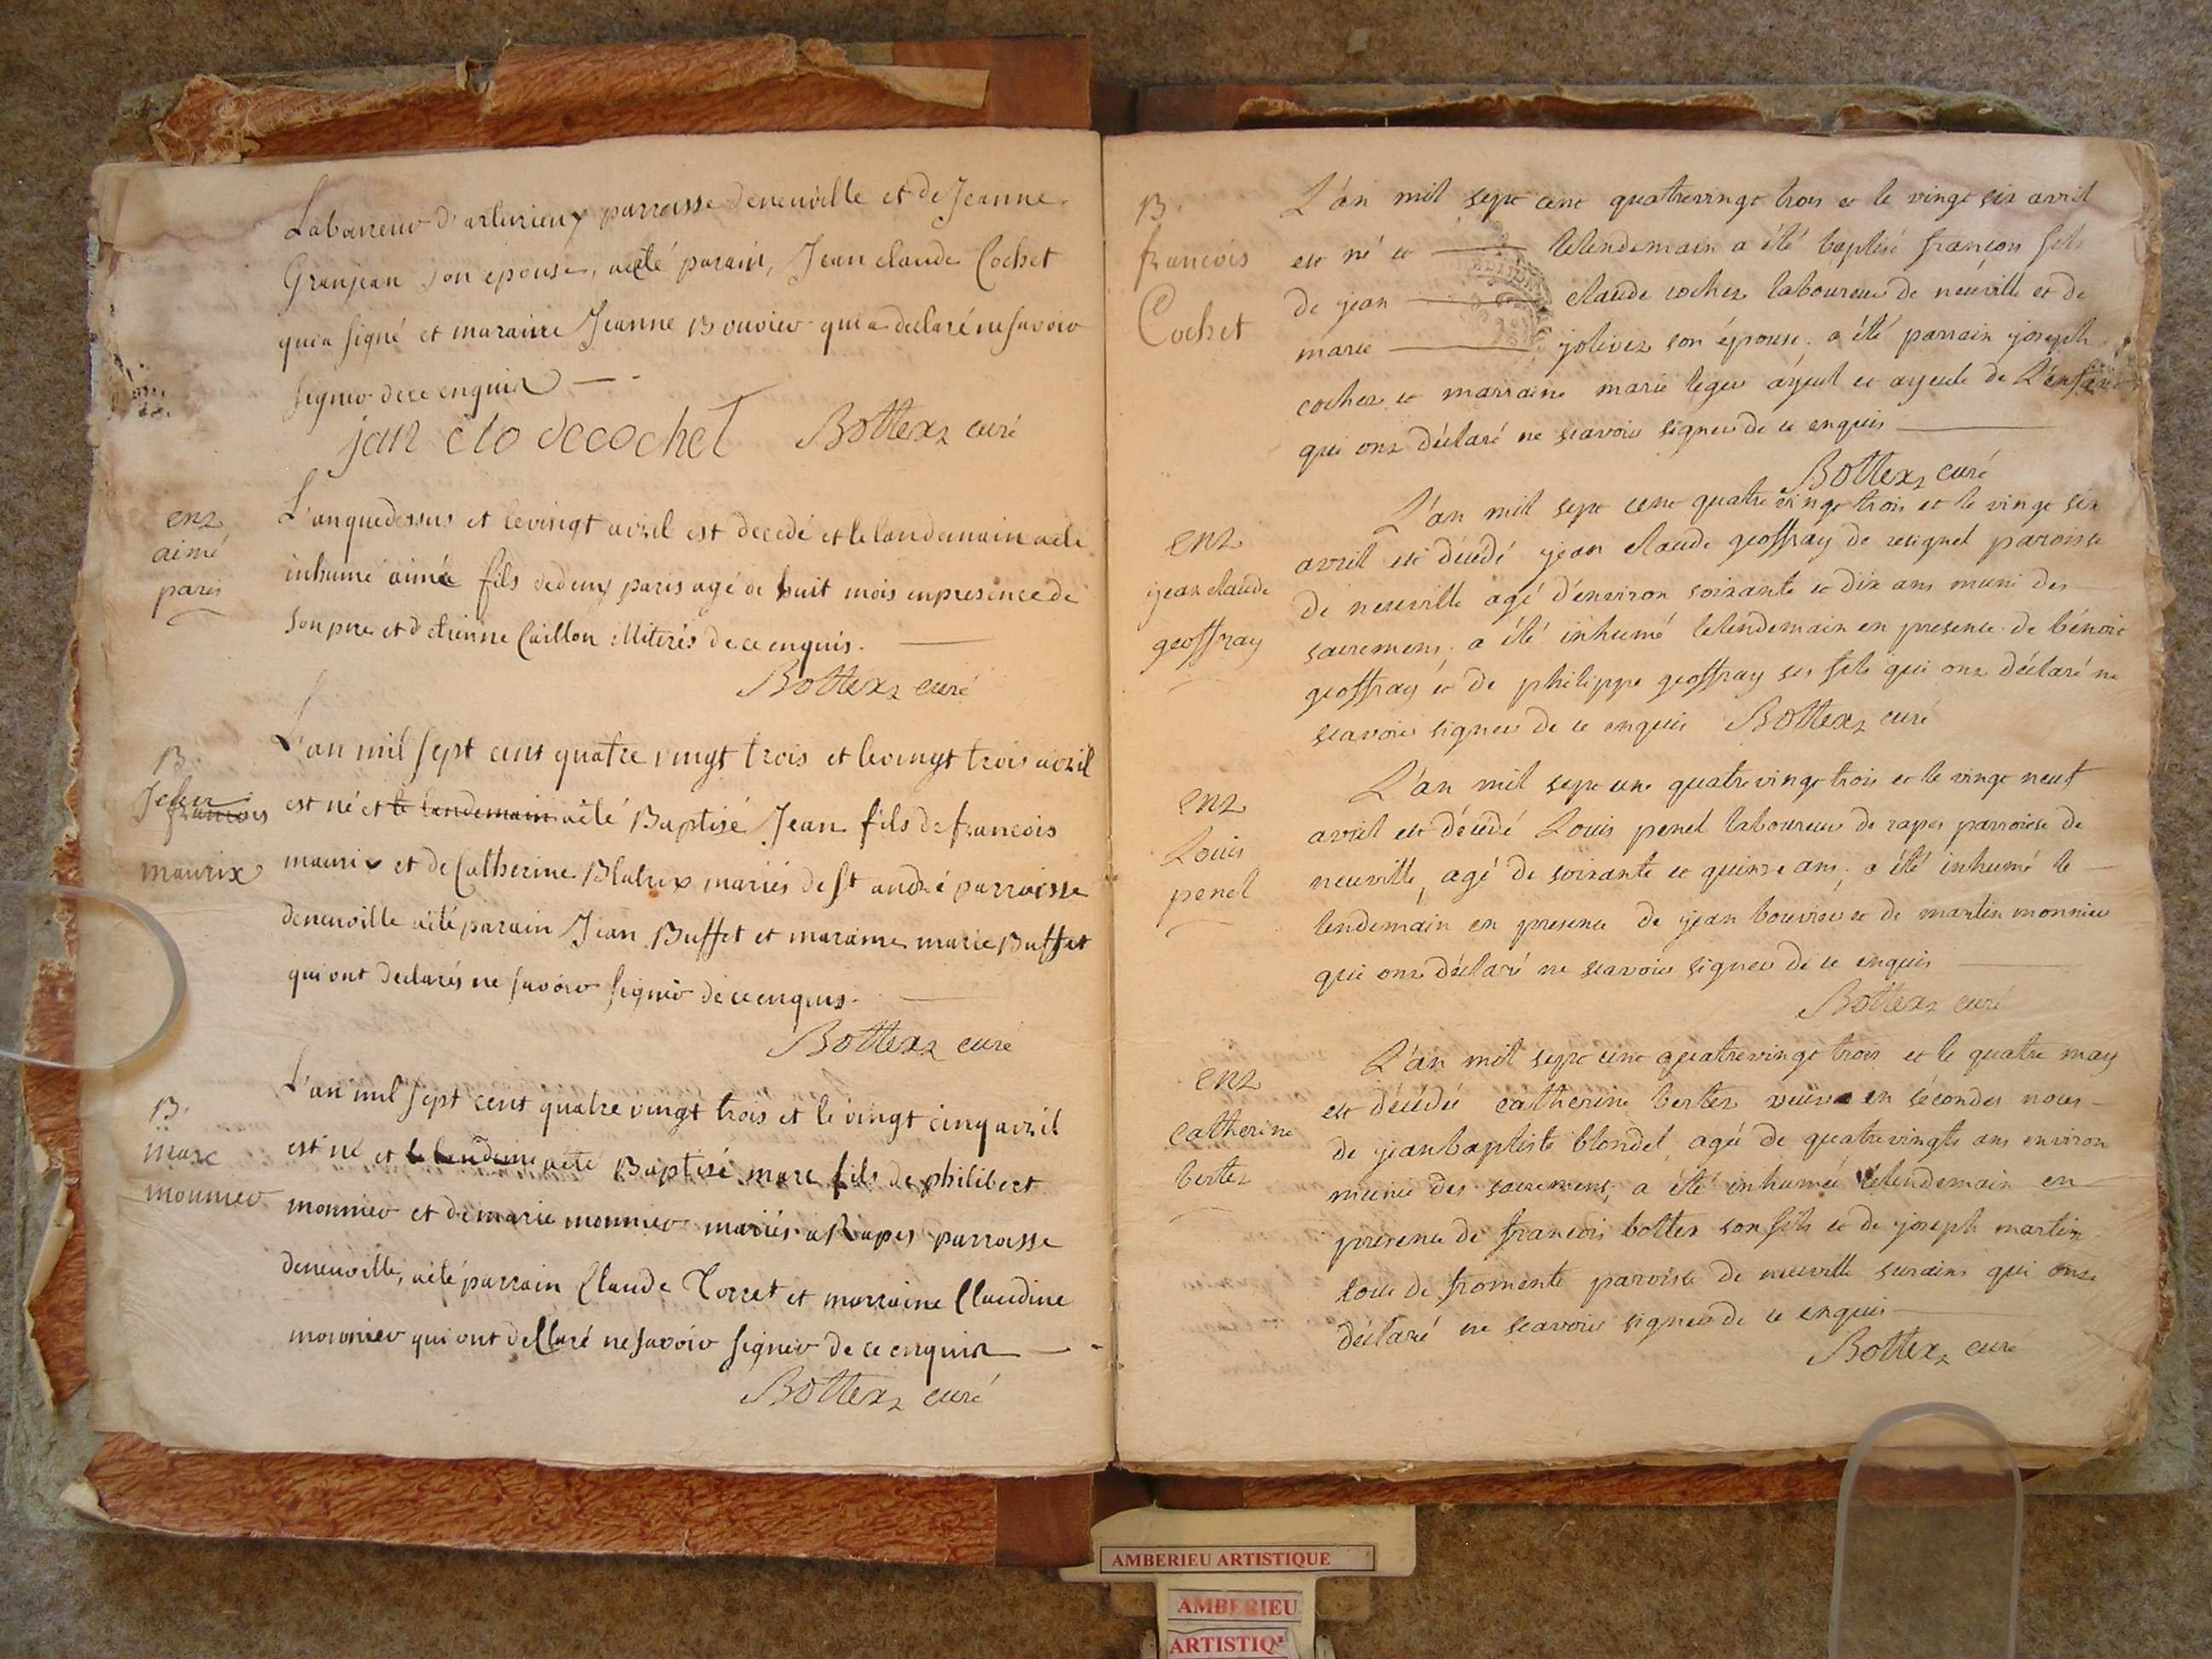 Laboureur d'arturieux parroisse deneuville et de Jeanne
Granjean son épouse, aeté parain, Jean claude Cochet
quia signé et maraine Jeanne Bouvier quia declaré nesavoir
signer dece enquis
jan clo decochet Bottex curé
enz
aimé
paris
L'anquedessus et levingt avril est decedé et le landemain aeté
inhumé aimée fils dedeux paris agé de huit mois enpresence de
son pere et d'etienne Caillon illiterés dece enquis.
Bottex curé
B.
Jean
francois
maurix
L'an mil sept cent quatre vingt trois et levingt trois avril
est né et le landemain aeté Baptisé Jean fils de francois
maurix et de Catherine Blatrix mariés de st andré parroisse
deneuville aeté parain Jean Buffet et maraine marie Buffet
qui ont declarés ne savoir signer de ce enquis.
Bottex curé
B.
marc
monnier
L'an mil sept cent quatre vingt trois et le vingt cinq avril
est né et le lendemain aeté Baptisé marc fils de philibert
monnier et de marie monnier mariés a Rapes parroisse
deneuville, aeté parrain Claude Torret et marraine Claudine
monnier qui ont dellaré nesavoir signer de ce enquis
Bottex curé
B.
francois
Cochet
L'an mil sept cent quatrevingt trois et le vingt six avril
est né et lelendemain a été baptisé françois fils
de jean claude cochet laboureur de neuville et de
marie jolivet son épouse. a été parrain joseph
cochet et marraine marie leger ayeul et ayeule de L'enfant
qui ont déclaré ne scavoir signer de ce enquis
Bottex curé
enz
jean claude
geoffray
L'an mil sept cent quatre vingt trois et le vingt six
avril est décédé jean claude geoffray de resignel paroisse
de neuville agé d'environ soixante et dix ans muni des
sacremens, a été inhumé lelendemain en presence de bénoit
geoffray et de philippe geoffray ses fils qui ont déclaré ne
scavoir signer de ce enquis Bottex curé
enz
Louis
penel
L'an mil sept cent quatrevingt trois et le vingt neuf
avril est décédé Louis penel laboureur de rapes parroisse de
neuville, agé de soixante et quinze ans, a été inhumé le
lendemain en presence de jean bouvier et de martin monnier
qui ont déclaré ne scavoir signer de ce enquis
Bottex curé
enz
catherine
bertet
L'an mil sept cent quatrevingt trois et le quatre may
est décédée catherine bertet veuve en sécondes noces
de jeanbaptiste blondel, agée de quatrevingts ans environ
munie des sacremens, a été inhumée lelendemain en
presence de francois bottex son fils et de joseph martin
tous de fromente paroisse de neuville surains qui ont
déclaré ne scavoir signer de ce enquis
Bottex curé
AMBERIEU ARTISTIQUE
AMBERIEU
ARTISTIQ